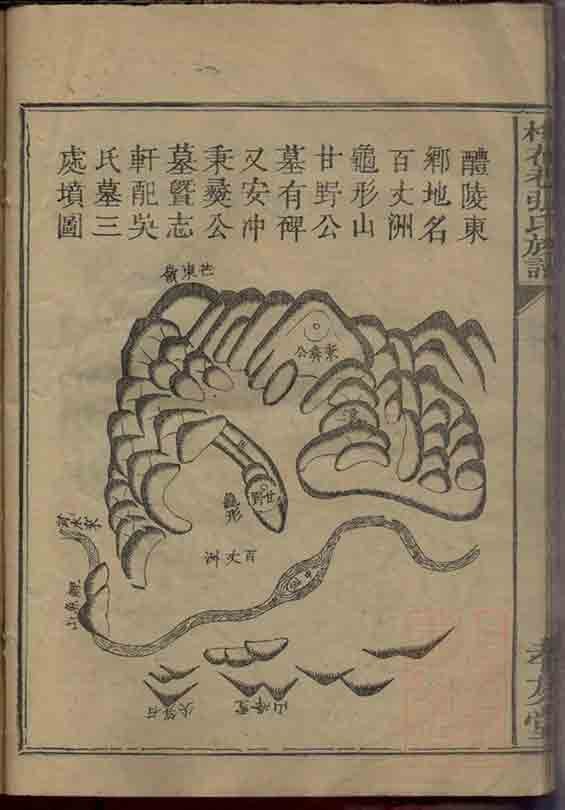 醴陵東
鄉地名
百丈洲
龜形山
甘野公
墓有碑
又安冲
秉彛公
墓暨志
軒配吳
氏墓三
處墳圖
張氏族譜
孝友堂
秉彛公
甘野
龜形
百丈洲
鯉魚山